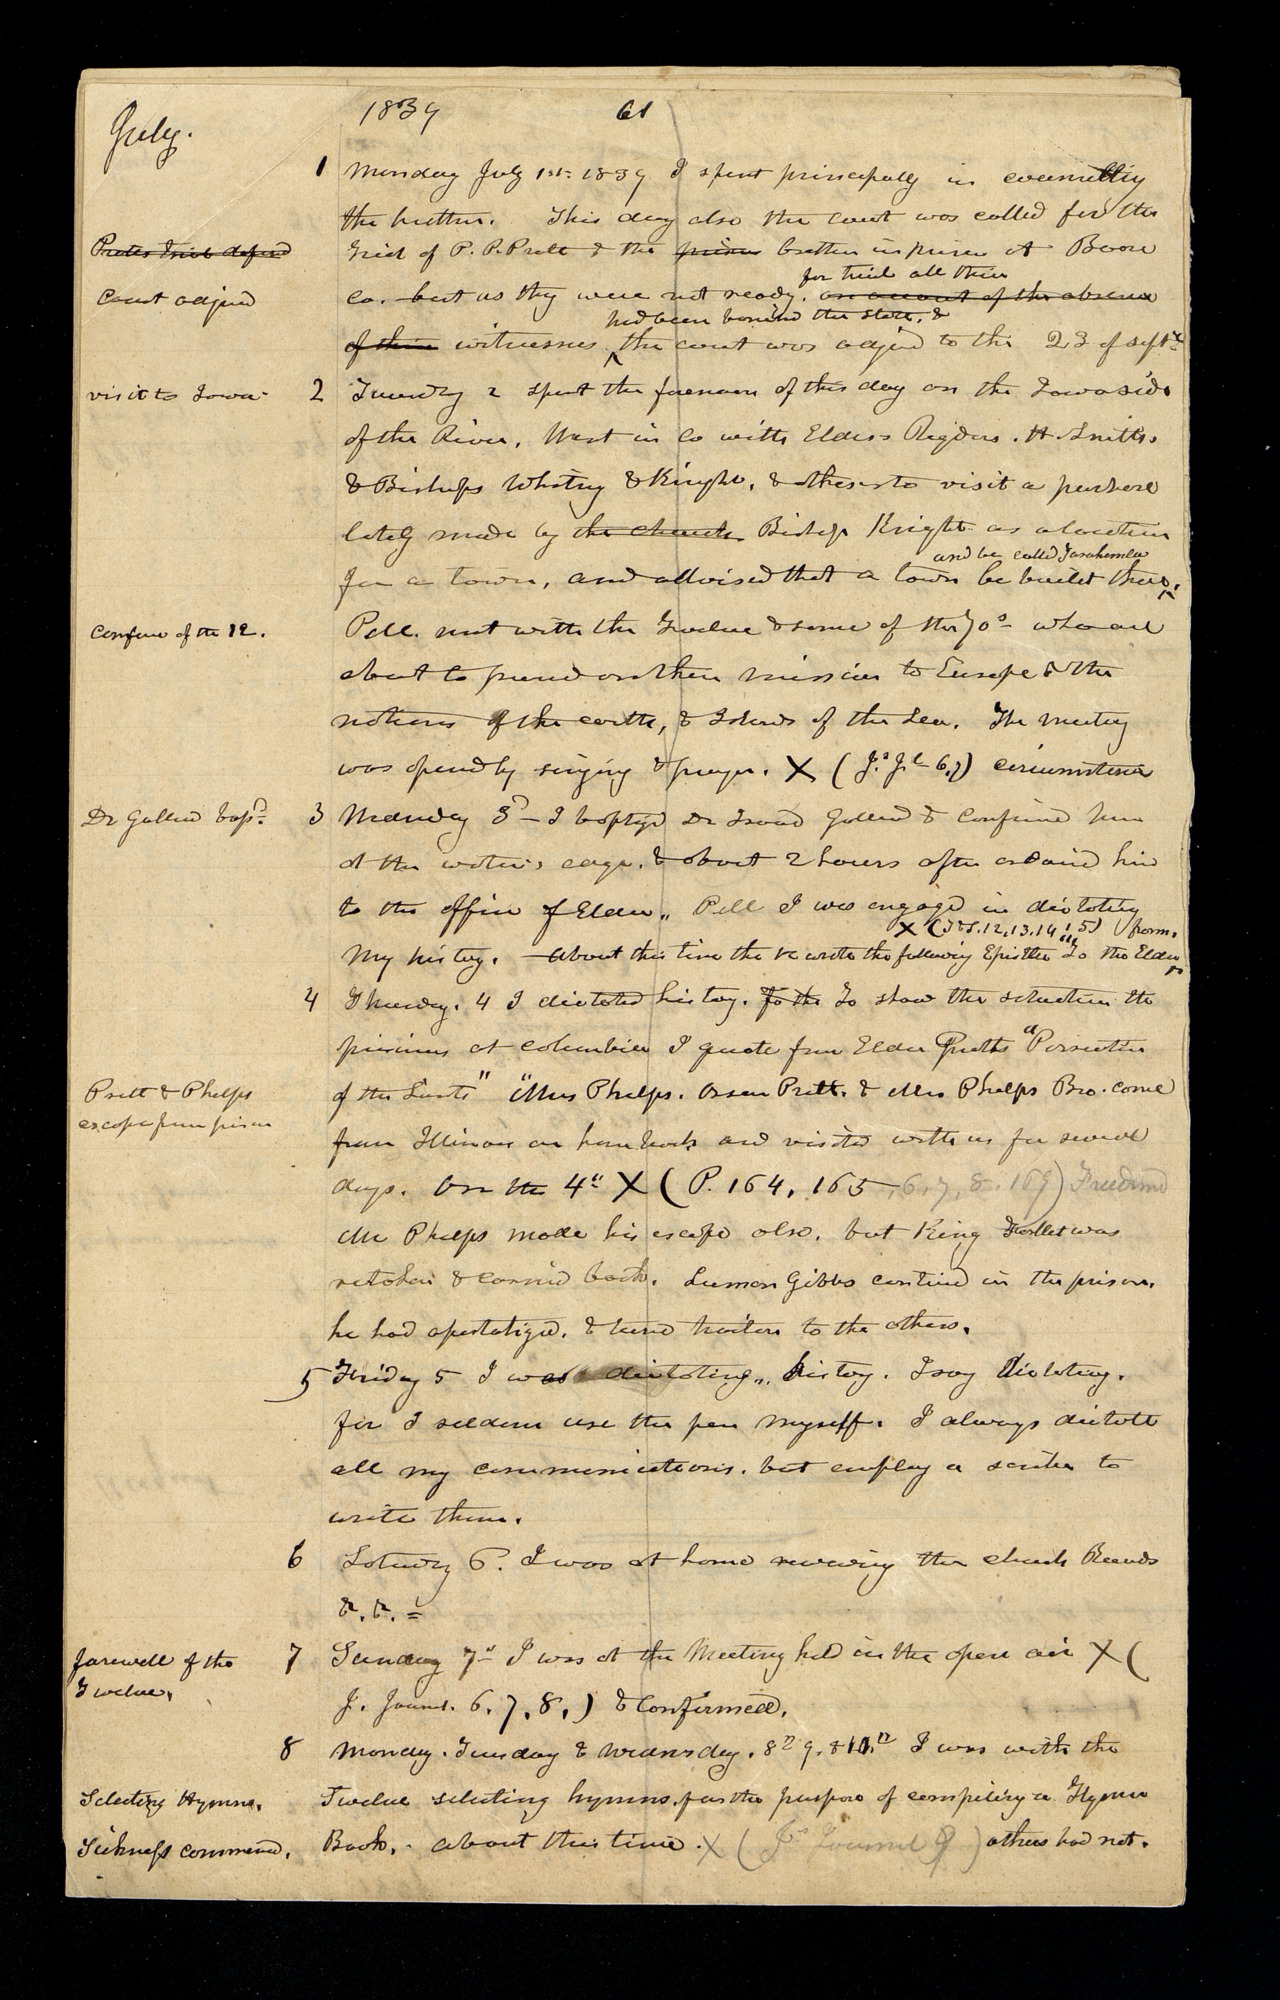 July.
1839 61
1 Monday July 1st 1839 I spent principally in counselling
the brethren. This day also the court was called for the
Prates trial defered
trial of P. P. Pratt & the prison brethren in prison at Boone
for trial all their
Court adjnd
co. but as they were not ready. on account of the absence
had been banind the state. &
of their witnesses, the court was adjnd to the 23 of sept.
visit to Iowa
2 Tuesday 2 spent the forenoon of this day on the Iowa side
of the River. Went in co with Elders Rigdon. H. Smith.
& Bishops Whitney & Knight, & others to visit a purchase
lately made by the church Bishop Knight as a location
and be called Zarahemla
for a town, and advised that a town be built there.
Confrnc of the 12.
P.M. met with the Twelve & some of the 70s who are
about to proceed on their mission to Europe & the
nations of the earth, & Islands of the Sea. The meeting
was opend by singing & prayer. X (J.s J.l 6,7) circumstances
Dr Galland bapd.
3 Wednesday 3d I baptizd Dr Isaac Galland & confirmed him
at the water's edge. & about 2 hours after ordaind him
to the office of Elder,, P.M. I was engagd in dictating
X (T&S. 12, 13, 14, 15) from.
my history. about this time the 12 wrote the following Epistle To the Elders
4 Thursday. 4 I dictated history. To the To show the situation the
prisoners at columbia I quote from Elder Pratts "Persecution
Pratt & Phelps
of the Saints" "Mrs Phelps. Orson Pratt. & Mrs Phelps Bro. came
escape from prison
from Illinois on horseback and visited with us for several
days. On the 4th X (P. 164, 165, 6, 7, 8, 169) Freedmd
Mr Phelps made his escape also, but King Follet was
retaken & carried back. Luman Gibbs continued in the prison.
he had apostatized. & turnd traitor to the others.
5 Friday 5 I was dictating,, history. I say dictating.
for I seldom use the pen myself. I always dictate
all my communications. but employ a scribe to
write them.
6 Saturday 6. I was at home reviewing the church Records
&. &. =
farewell of the
Twelve,
7 Sunday 7th I was at the Meeting held in the open air X (
J. Journl. 6, 7, 8,) & confirmed.
8 Monday. Tuesday & Wednesday. 8th 9. & 10.th I was with the
Selecting Hymns.
Twelve selecting hymns. for the purpose of compiling a Hymn
Sickness commencd.
Book. - about this time. X (J.s Journal 9) others had not.